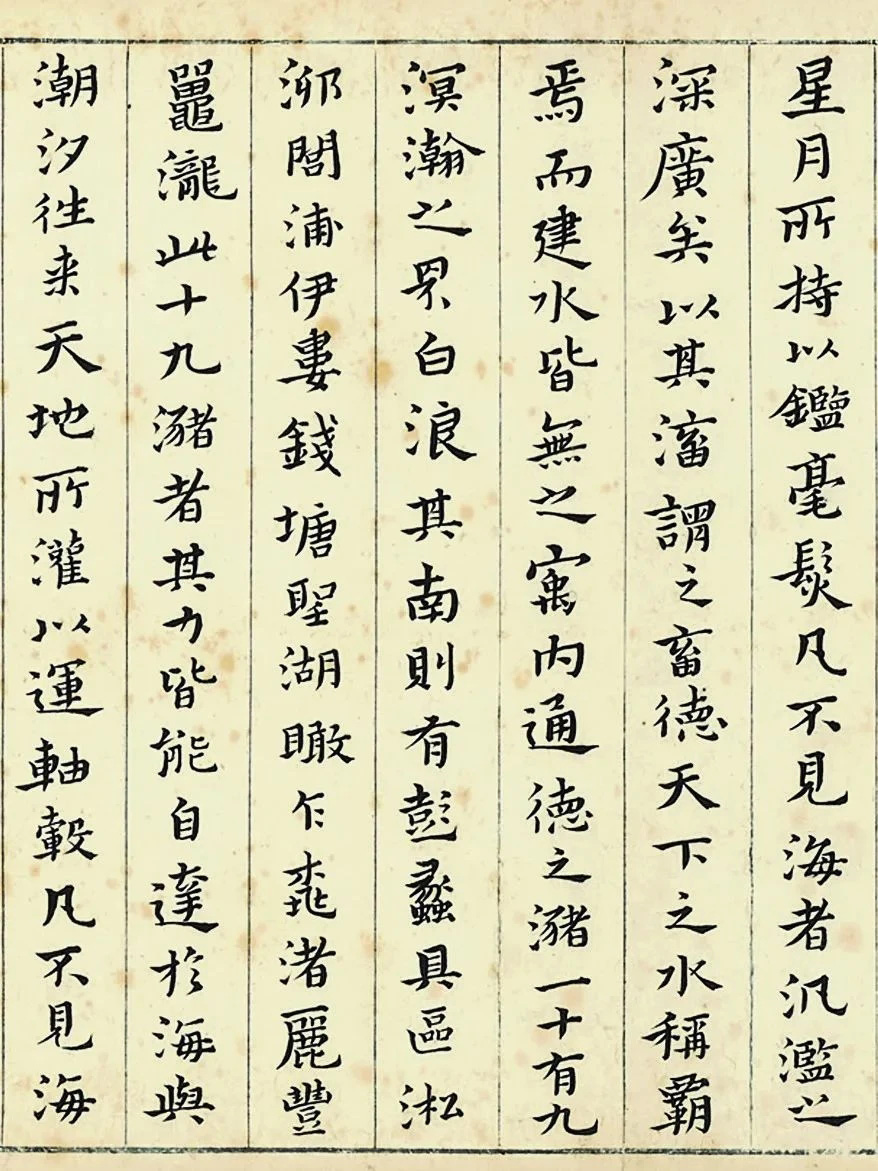 星月所持以鑑毫髮凡不見海者汎濫之
深廣矣以其滀謂之畜德天下之水稱霸
焉而建水皆無之寓内通德之瀦一十有九
溟瀚之界白浪其南則有彭蠡具區淞
泖閤浦伊婁錢塘聖湖瞰乍渚麗豐
鼉瀧此十九瀦者其力皆能自達於海與
潮汐往来天地所灌以運軸轂凡不見海